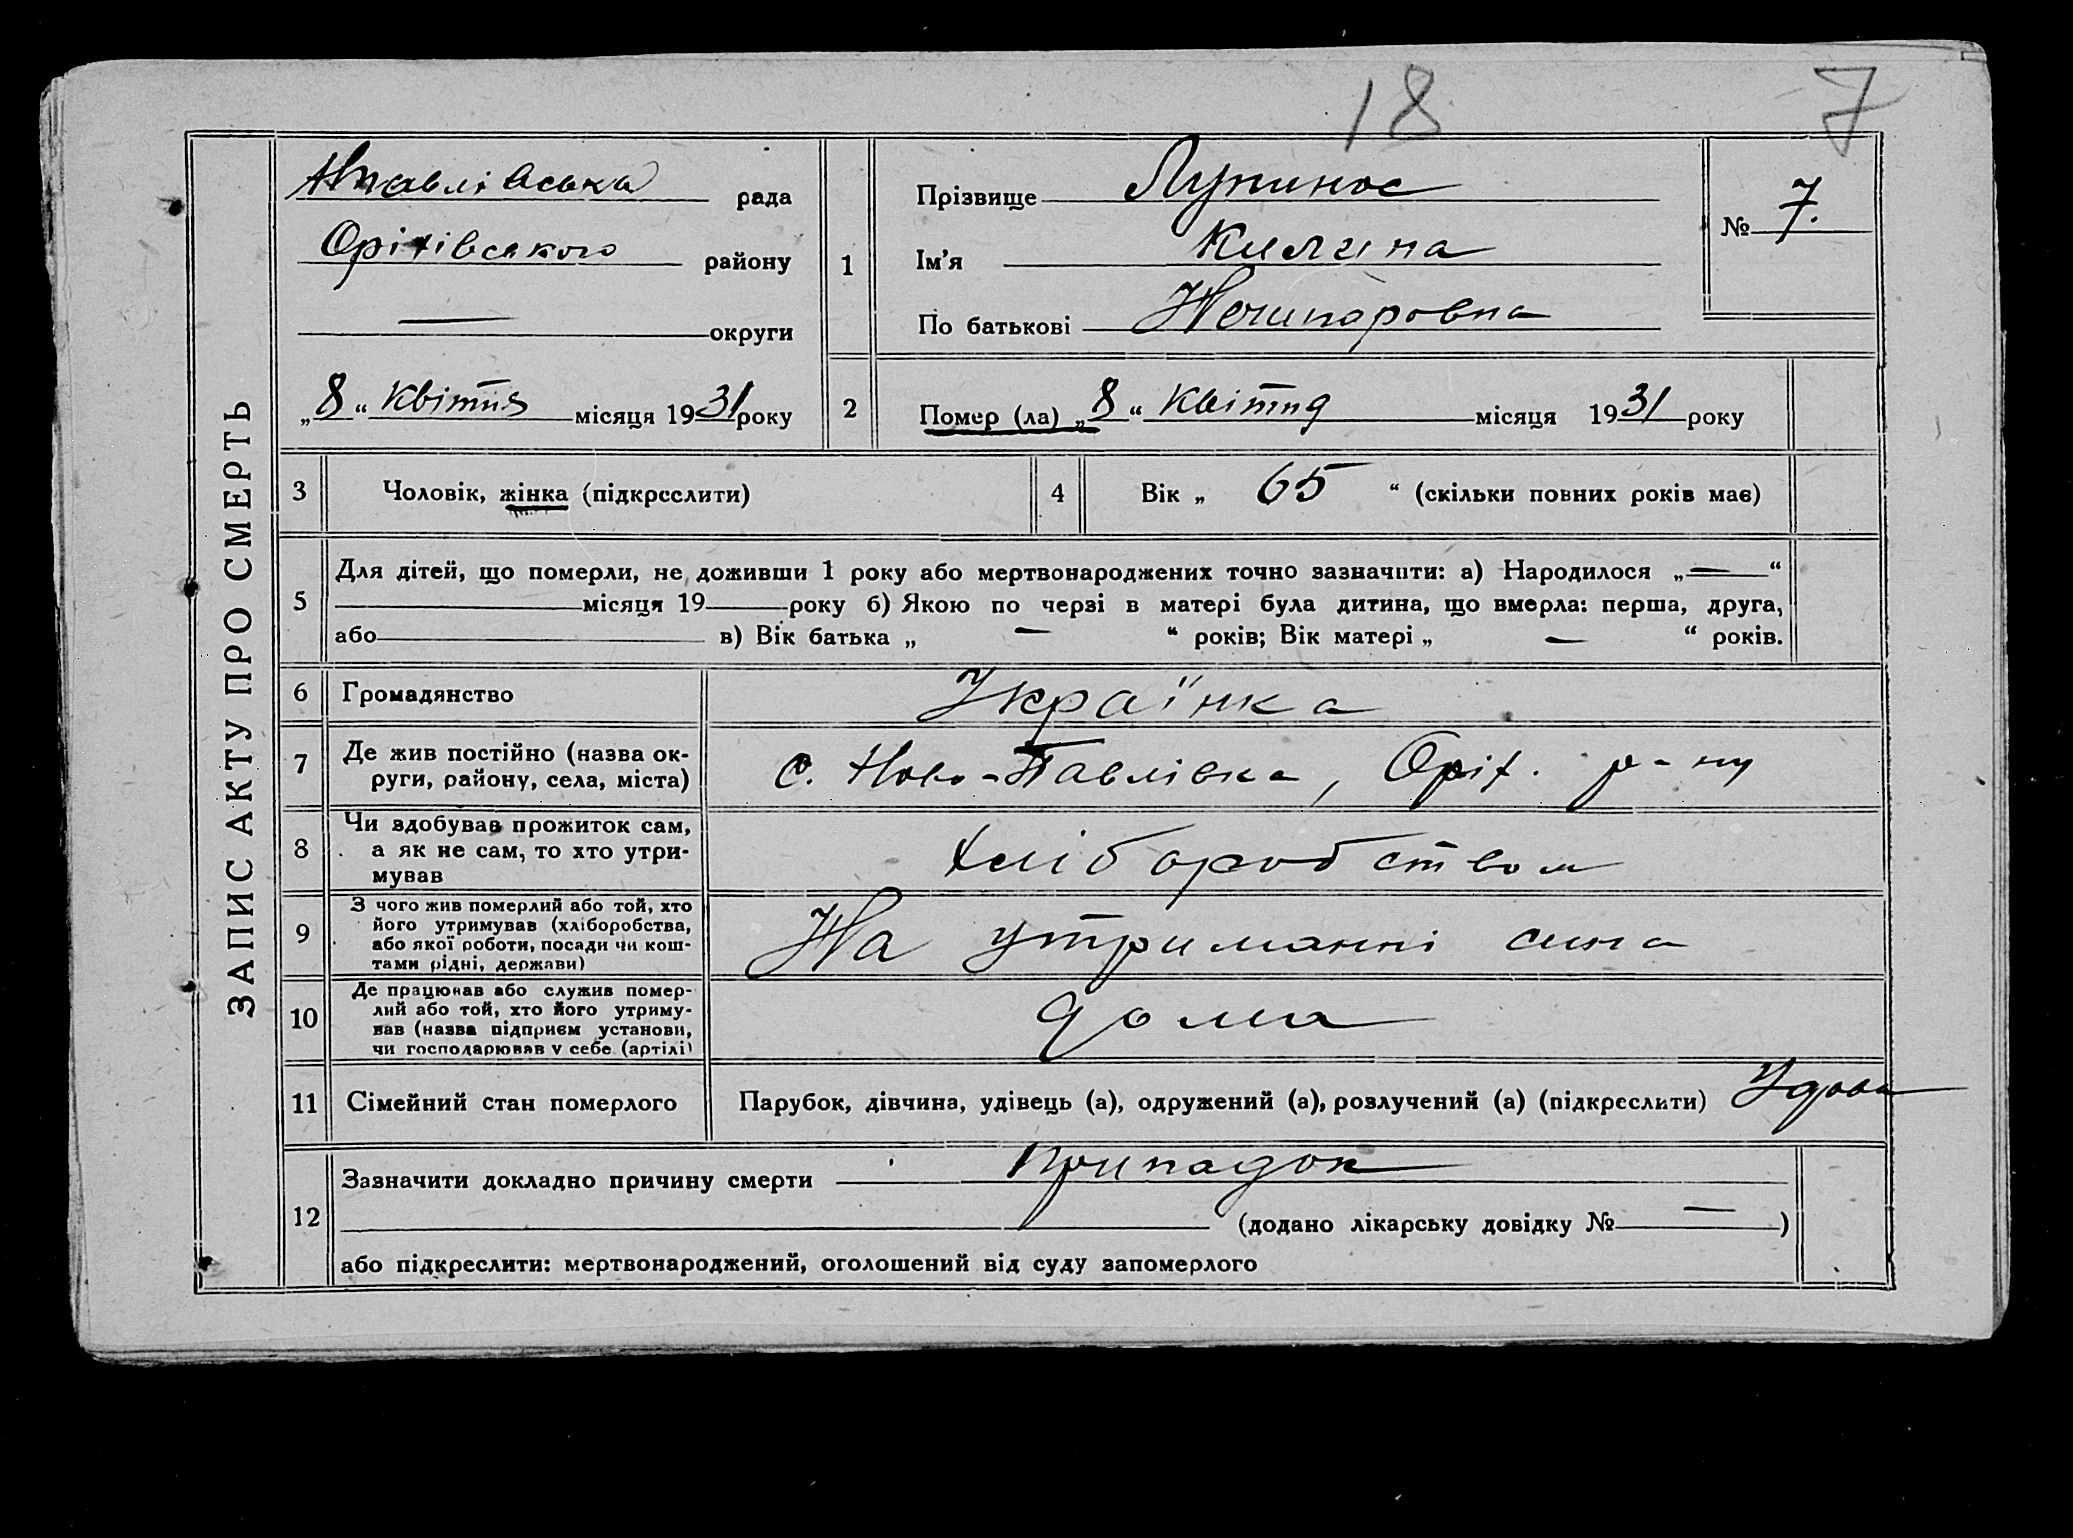 18 7
ЗАПИС АКТУ ПРО СМЕРТЬ
Нпавлівська рада
Оріхівського району
— округи
„8“ квітня місяця 1931 року
1
Прізвище Лупинос
Ім'я Килина
По батькові Нечипоровна
№ 7.
2
Помер (ла) „8“ квітня місяця 1931 року
3 Чоловік, жінка (підкреслити)
4 Вік „ 65 “ (скільки повних років має)
5
Для дітей, що померли, не доживши 1 року або мертвонароджених точно зазначити: а) Народилося „—“
місяця 19 року б) Якою по черзі в матері була дитина, що вмерла: перша, друга,
або в) Вік батька „ — “ років; Вік матері „ — “ років.
6 Громадянство Українка
7 Де жив постійно (назва ок-
руги, району, села, міста) с. Ново-Павлівка, Оріх. р-ну
8 Чи здобував прожиток сам,
а як не сам, то хто утри-
мував хліборобством
9 З чого жив померлий або той, хто
його утримував (хліборобства,
або якої роботи, посади чи кош-
тами рідні, держави) На утриманні сина
10 Де працював або служив помер-
лий або той, хто його утриму-
вав (назва підприєм установи,
чи господарював у себе (артілі) дома
11 Сімейний стан померлого Парубок, дівчина, удівець (а), одружений (а), розлучений (а) (підкреслити) Удова
12
Зазначити докладно причину смерти припадок
(додано лікарську довідку № — )
або підкреслити: мертвонароджений, оголошений від суду запомерлого